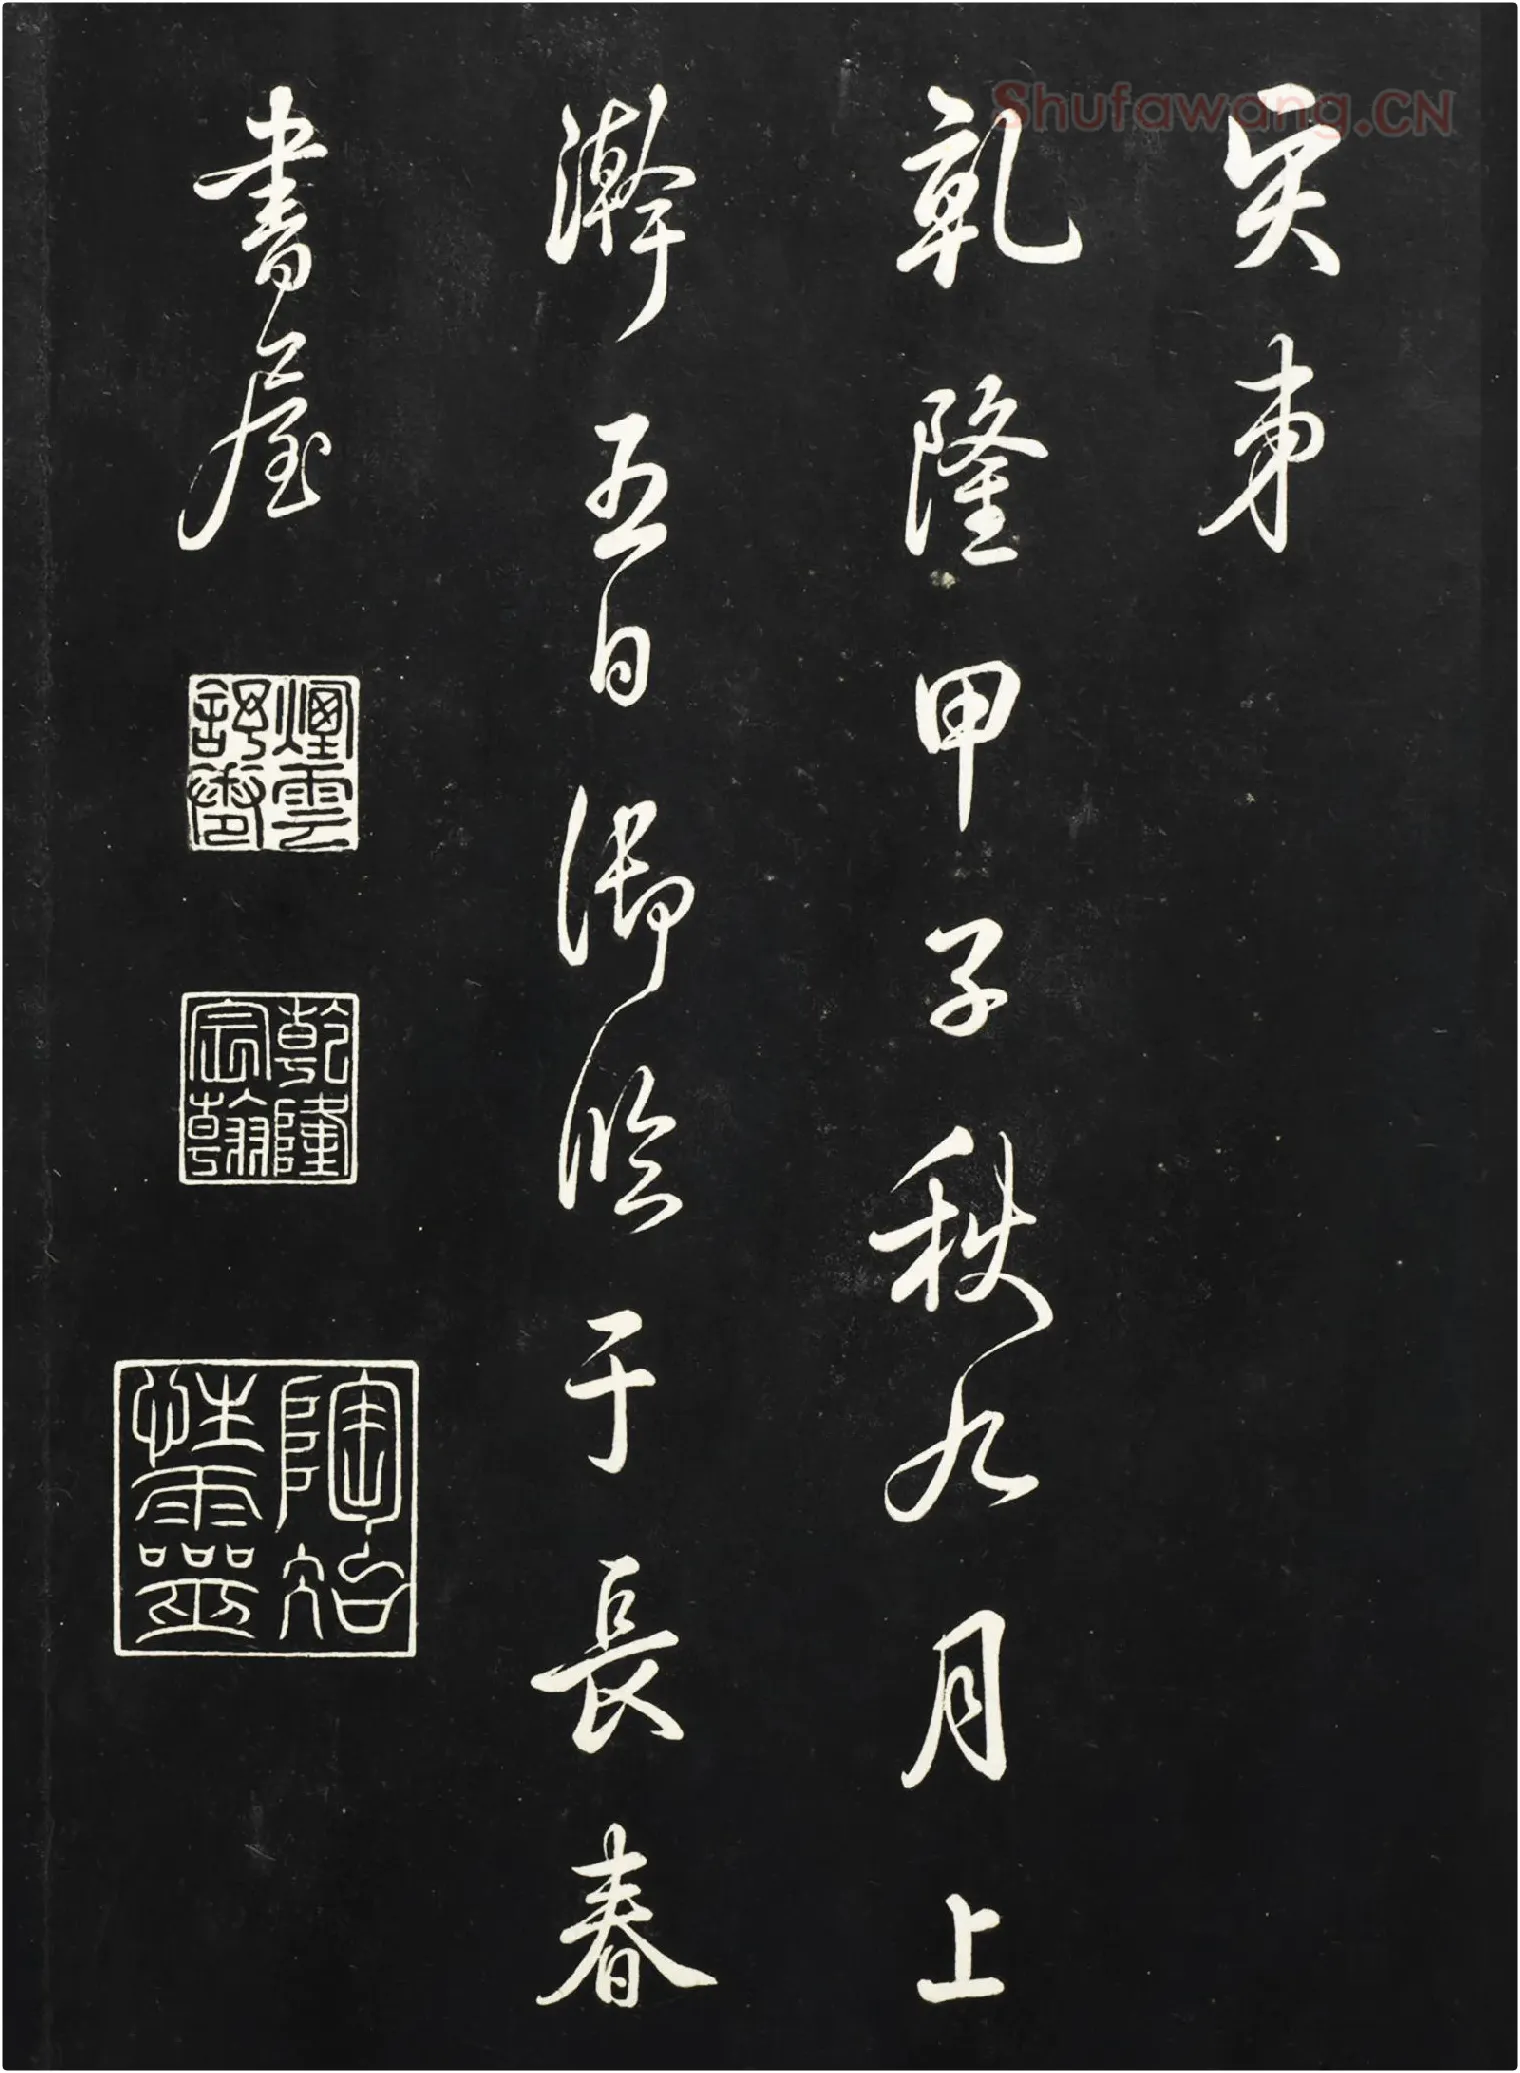 Shufawang.CN
乾隆甲子秋九月上
澣五日御臨于長春
書屋
煙雲
舒卷
乾隆
宸翰
陶冶
性靈